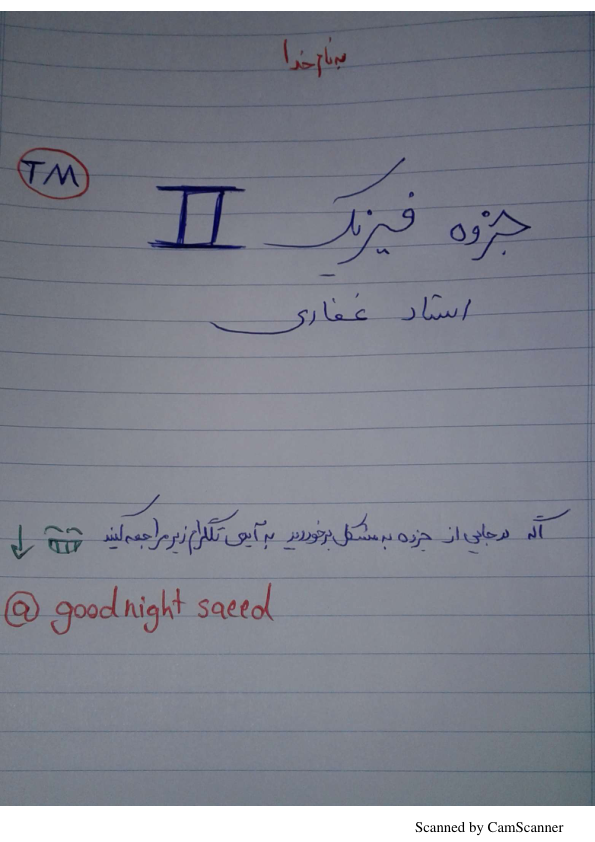 به نام خدا
TM
جزوه فیزیک II
استاد غفاری
اگه در جایی از جزوه به مشکل برخوردید به آیدی تلگرام زیر مراجعه کنید
@ goodnight saeed
Scanned by CamScanner